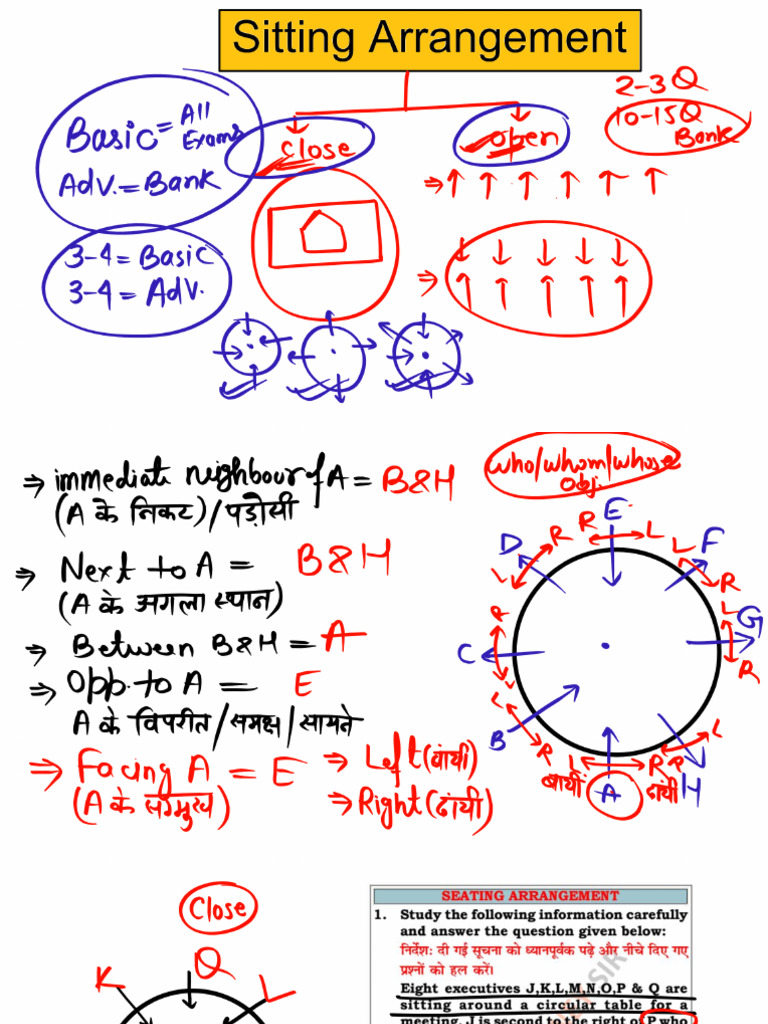 Sitting Arrangement
2-3Q
10-15Q
Bank
Basic = All Exams
Adv. = Bank
close
open
3-4 = Basic
3-4 = Adv.
⇒ immediate neighbour of A = B&H
(A के निकट) / पड़ोसी
who/whom/whose
obj.
⇒ Next to A = B&H
(A के अगला स्थान)
⇒ Between B&H = A
⇒ Opp. to A = E
A के विपरीत / समक्ष / सामने
⇒ Facing A = E
(A के सम्मुख)
⇒ Left (बांयी)
⇒ Right (दांयी)
R E L
D R L F
L R
R L G
C R
L L
B R L R R H
बायीं A दांयी
Close
K Q L
SEATING ARRANGEMENT
1. Study the following information carefully
and answer the question given below:
निर्देश: दी गई सूचना को ध्यानपूर्वक पढ़े और नीचे दिए गए
प्रश्नों को हल करें।
Eight executives J,K,L,M,N,O,P & Q are
sitting around a circular table for a
meeting. J is second to the right of P who
SIR